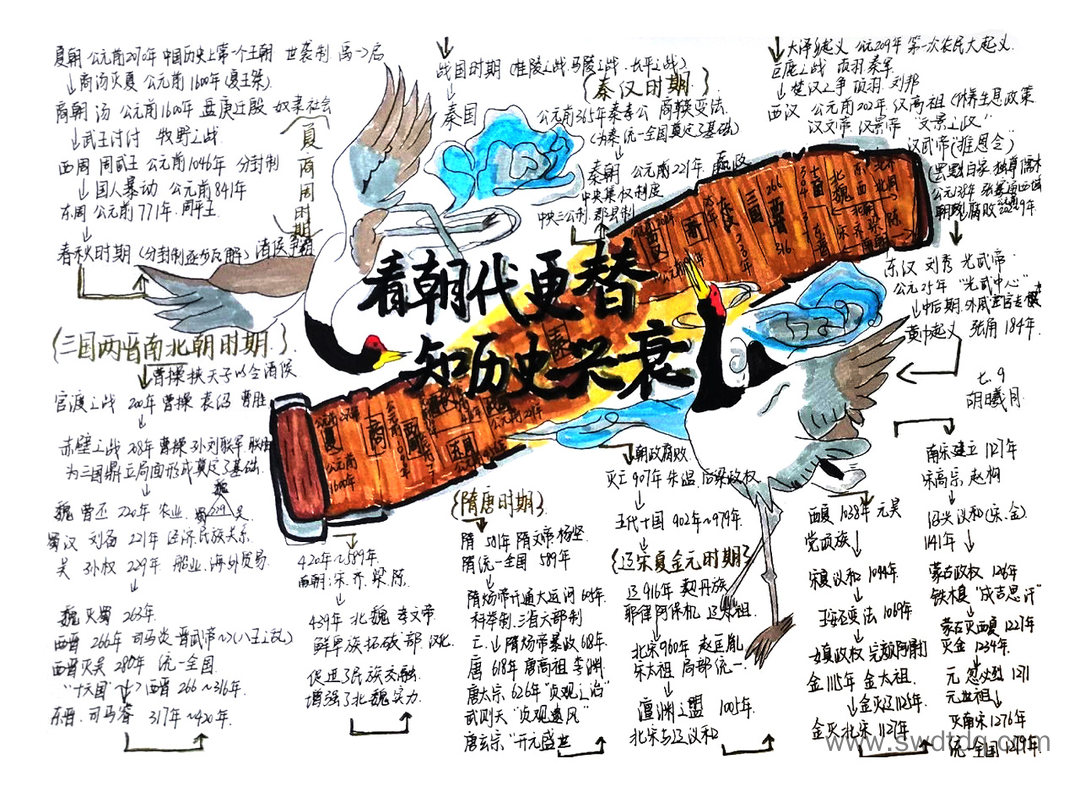 看朝代更替
知历史兴衰
夏商周时期
夏朝 公元前2070年 中国历史上第一个王朝 世袭制 禹→启
↓商汤灭夏 公元前1600年(夏王桀)
商朝 汤 公元前1600年 盘庚迁殷 奴隶社会
↓武王讨付 牧野之战
西周 周武王 公元前1046年 分封制
↓国人暴动 公元前841年
东周 公元前771年 周平王
↓
春秋时期(分封制逐步瓦解)诸侯争霸
战国时期(桂陵之战.马陵之战.长平之战)
↓
秦国
{秦汉时期}
公元前365年秦孝公 商鞅变法
(为秦统一全国奠定了基础)
秦朝 公元前221年 嬴政
中央集权制度
中央三公制 郡县制
↓大泽乡起义 公元209年 第一次农民大起义
巨鹿之战 项羽 秦军
↓楚汉之争 项羽 刘邦
西汉 公元前202年 汉高祖 休养生息政策
汉文帝 汉景帝 "文景之治"
汉武帝(推恩令)
东汉 刘秀 光武帝
公元25年 "光武中心"
黄巾起义 张角 184年
七.9
胡曦月
{三国两晋南北朝时期}
↓曹操挟天子以令诸侯
官渡之战 200年 曹操 袁绍 曹胜
↓
赤壁之战 208年 曹操 孙刘联军
为三国鼎立局面形成奠定了基础
↓
魏 曹丕 220年 农业
蜀汉 刘备 221年 经济民族关系
吴 孙权 229年 船业.海外贸易
魏灭蜀 263年
西晋 266年 司马炎 晋武帝~(八王之乱)
西晋灭吴 280年 统一全国
西晋 266~316年
东晋.司马睿 317年~420年
420年~589年
南朝:宋.齐.梁.陈
↓
439年 北魏 孝文帝
鲜卑族拓跋部 汉化
促进了民族交融
增强了北魏实力
{隋唐时期}
隋 581年 隋文帝杨坚
隋统一全国 589年
隋炀帝开通大运河 605年
科举制.三省六部制
隋炀帝暴政 618年
唐 618年 唐高祖 李渊
唐太宗 626年 "贞观之治"
武则天 "贞观遗风"
唐玄宗 "开元盛世"
↓朝政腐败
灭亡 907年 朱温.后梁政权
↓
五代十国 902年~979年
{辽宋夏金元时期}
辽 916年 契丹族
耶律阿保机 辽太祖
↓
北宋 960年 赵匡胤
宋太祖 局部统一
↓
澶渊之盟 1005年
北宋与辽议和
西夏 1038年 元昊
党项族
↓
宋夏议和 1044年
↓
王安石变法 1069年
↓
女真政权 完颜阿骨打
金 1115年 金太祖
↓金灭辽 1125年
金灭北宋 1127年
南宋建立 1127年
宋高宗 赵构
↓
绍兴议和(宋.金)
1141年
↓
蒙古政权 1206年
铁木真 "成吉思汗"
↓
蒙古灭西夏 1227年
灭金 1234年
元 忽必烈 1271
元世祖
↓灭南宋 1276年
统一全国 1279年
www.swdtdq.com